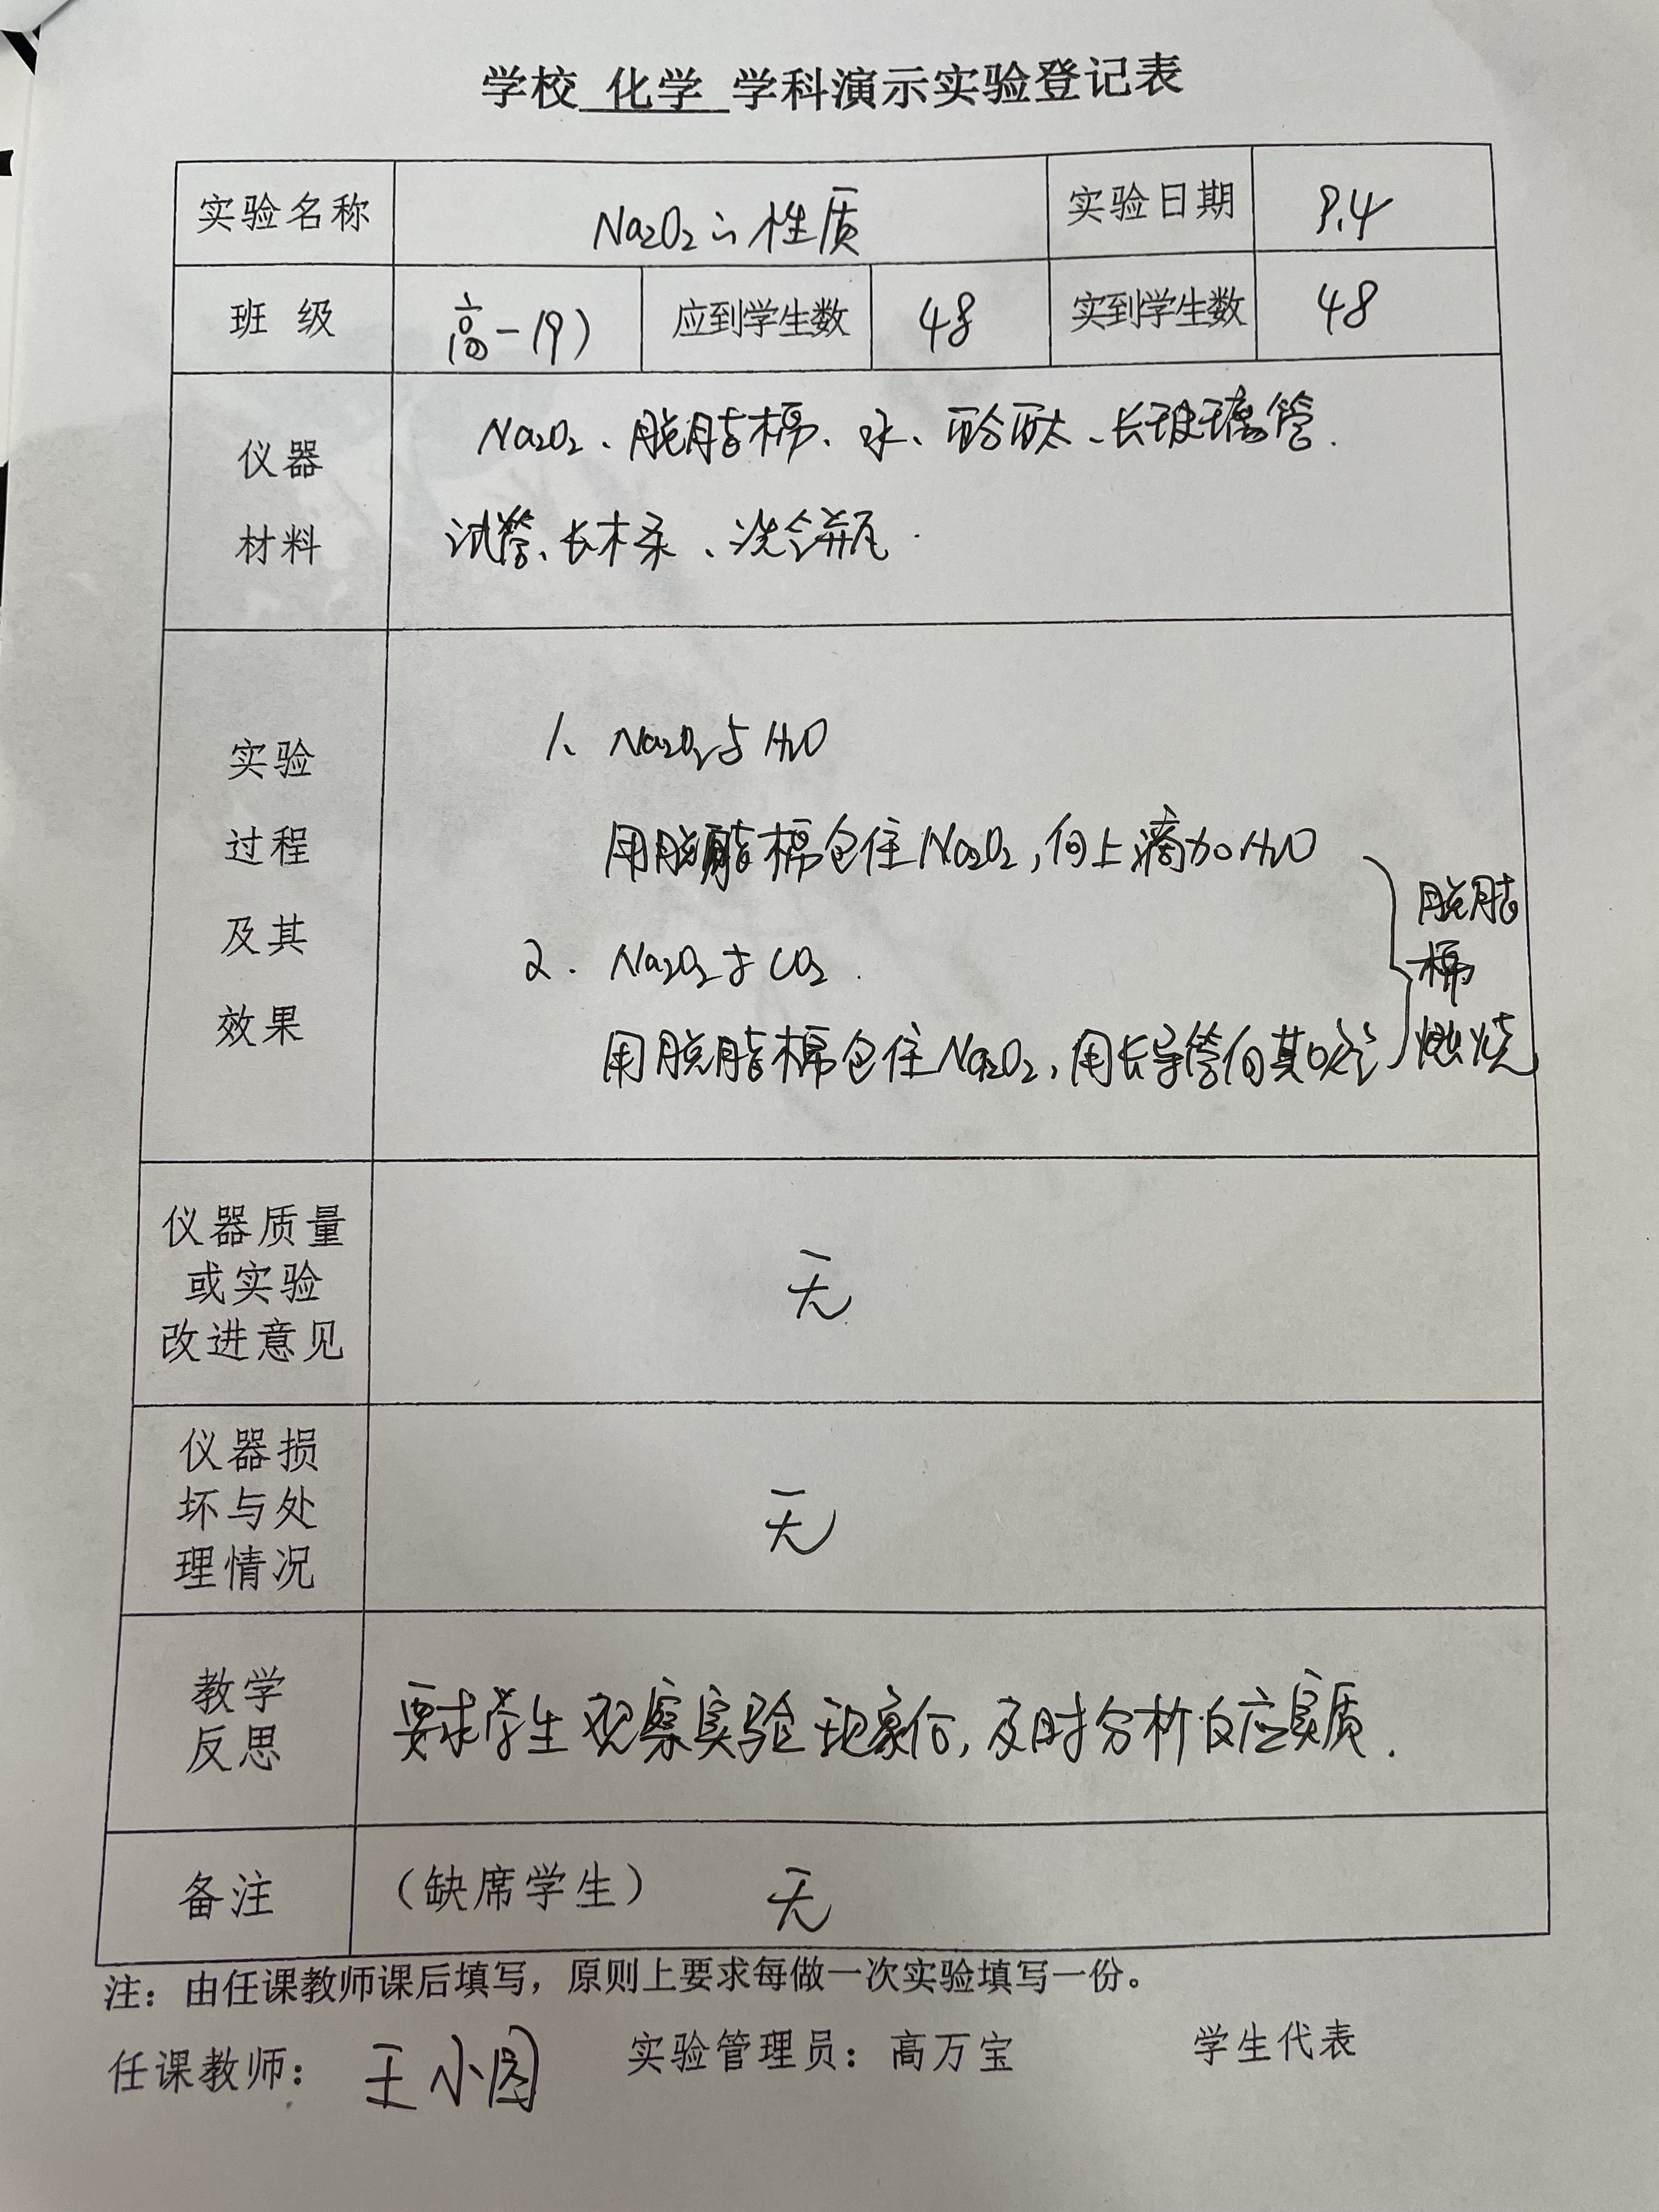 学校 化学 学科演示实验登记表
实验名称 Na2O2的性质 实验日期 9.4
班 级 高一(9) 应到学生数 48 实到学生数 48
仪器 Na2O2、脱脂棉、水、酚酞、长玻璃管.
材料 试管、长木条、洗气瓶.
实验 1、Na2O2与H2O
过程 用脱脂棉包住Na2O2,向上滴加H2O
及其 2. Na2O2与CO2.
效果 用脱脂棉包住Na2O2,用长导管向其吹气
脱脂
棉
燃烧
仪器质量
或实验 无
改进意见
仪器损
坏与处 无
理情况
教学 要求学生观察实验现象后,及时分析反应实质.
反思
备注 (缺席学生) 无
注：由任课教师课后填写，原则上要求每做一次实验填写一份。
任课教师： 王小 实验管理员：高万宝 学生代表